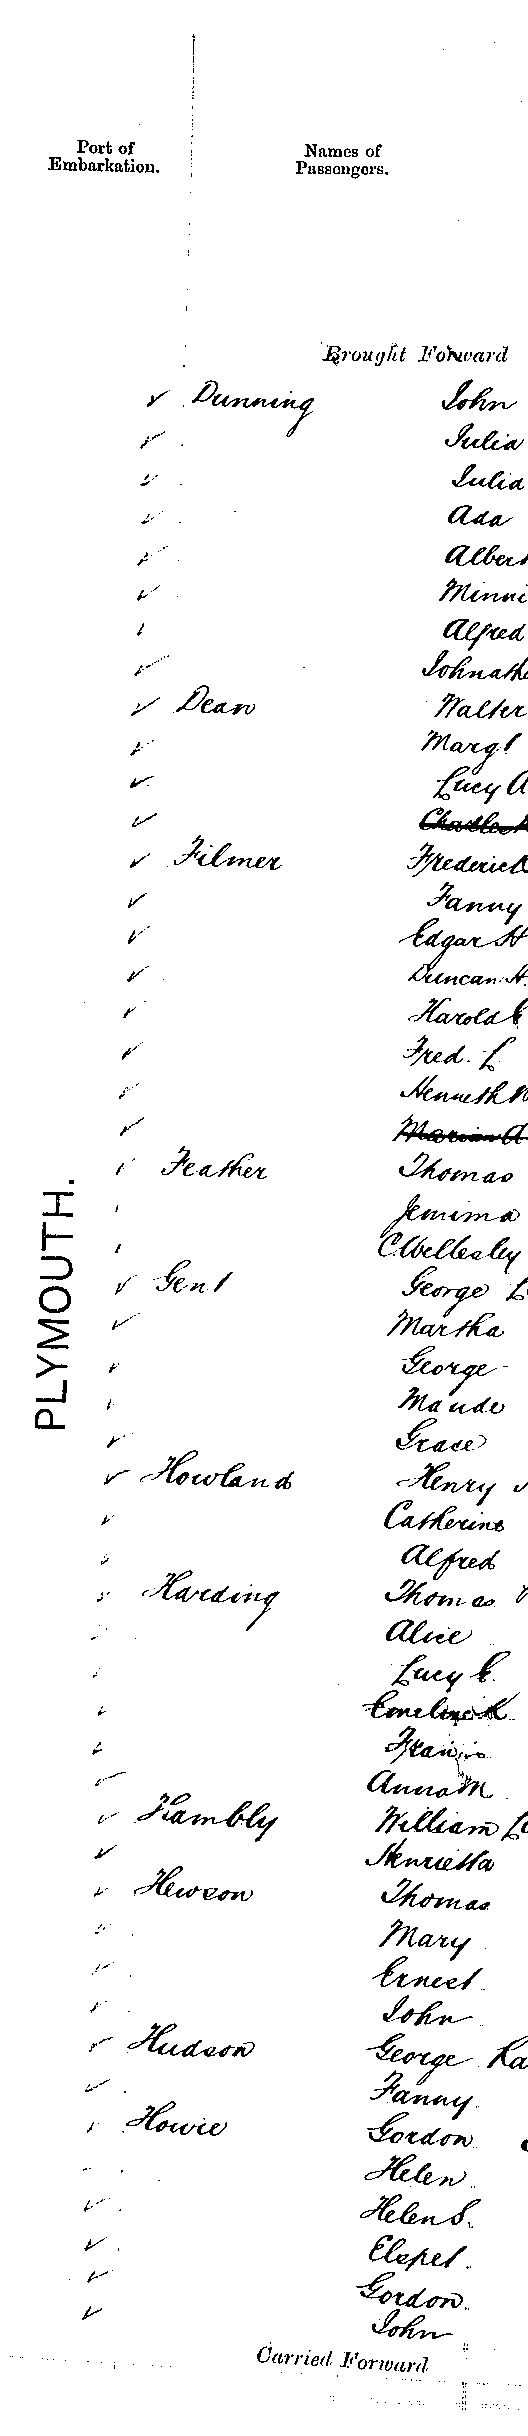 Port of Names of
Embarkation. Passengers.
Brought Forward
Dunning John
Julia
Julia
Ada
Albert
Minni
Alfred
Johnath
Dean Walter
Margt
Lucy A
Charles
Filmer Frederick
Fanny
Edgar H
Duncan H.
Harold E
Fred. L
Kenneth
Marian A
Feather Thomas
Jemima
C Wellesley
PLYMOUTH.
Gent George L
Martha
George
Maude
Grace
Howland Henry
Catherine
Alfred
Harding Thomas
Alice
Lucy E.
Emeline K
Francis
Anna M
Hambly William L
Henrietta
Hewson Thomas
Mary
Ernest
John
Hudson George Ra
Fanny
Howie Gordon
Helen
Helen S.
Elspet
Gordon
John
Carried Forward